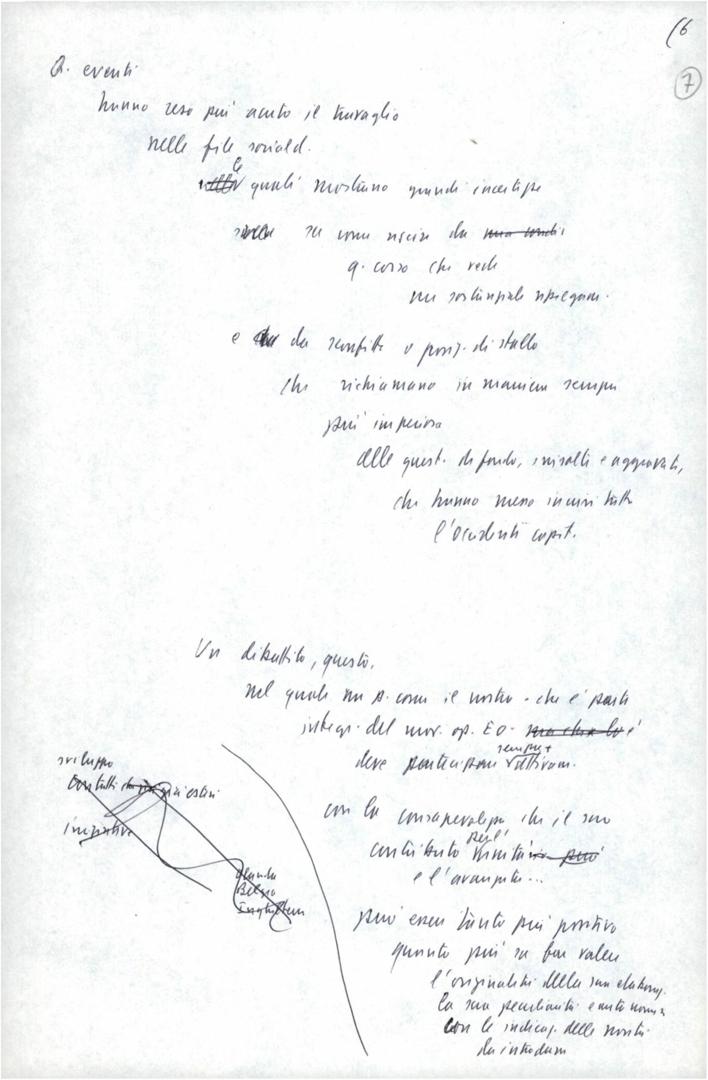 (6
7
Q. eventi
hanno reso più acuto il travaglio
nelle file sociald.
le quali mostrano grandi incertezze
su come uscire da
q. corso che vede
un sostanziale ripiegam.
e da sconfitte o posiz. di stallo
che richiamano in maniera sempre
più imperiosa
alle quest. di fondo, irrisolte e aggravate,
che hanno messo in crisi tutto
l'occidente capit.
Un dibattito, questo,
nel quale un p. come il nostro - che è parte
integr. del mov. op. EO -
deve partecipare sempre + attivam.
con la consapevolezza che il suo
contributo per l'unità
e l'avanzata...
può essere tanto più positivo
quanto più sa far valere
l'originalità della sua elaboraz.
la sua peculiarità e autonomia
con le indicaz. delle novità
da introdurre
sviluppo
contatti già estesi
iniziative
Olanda
Belgio
Inghilterra